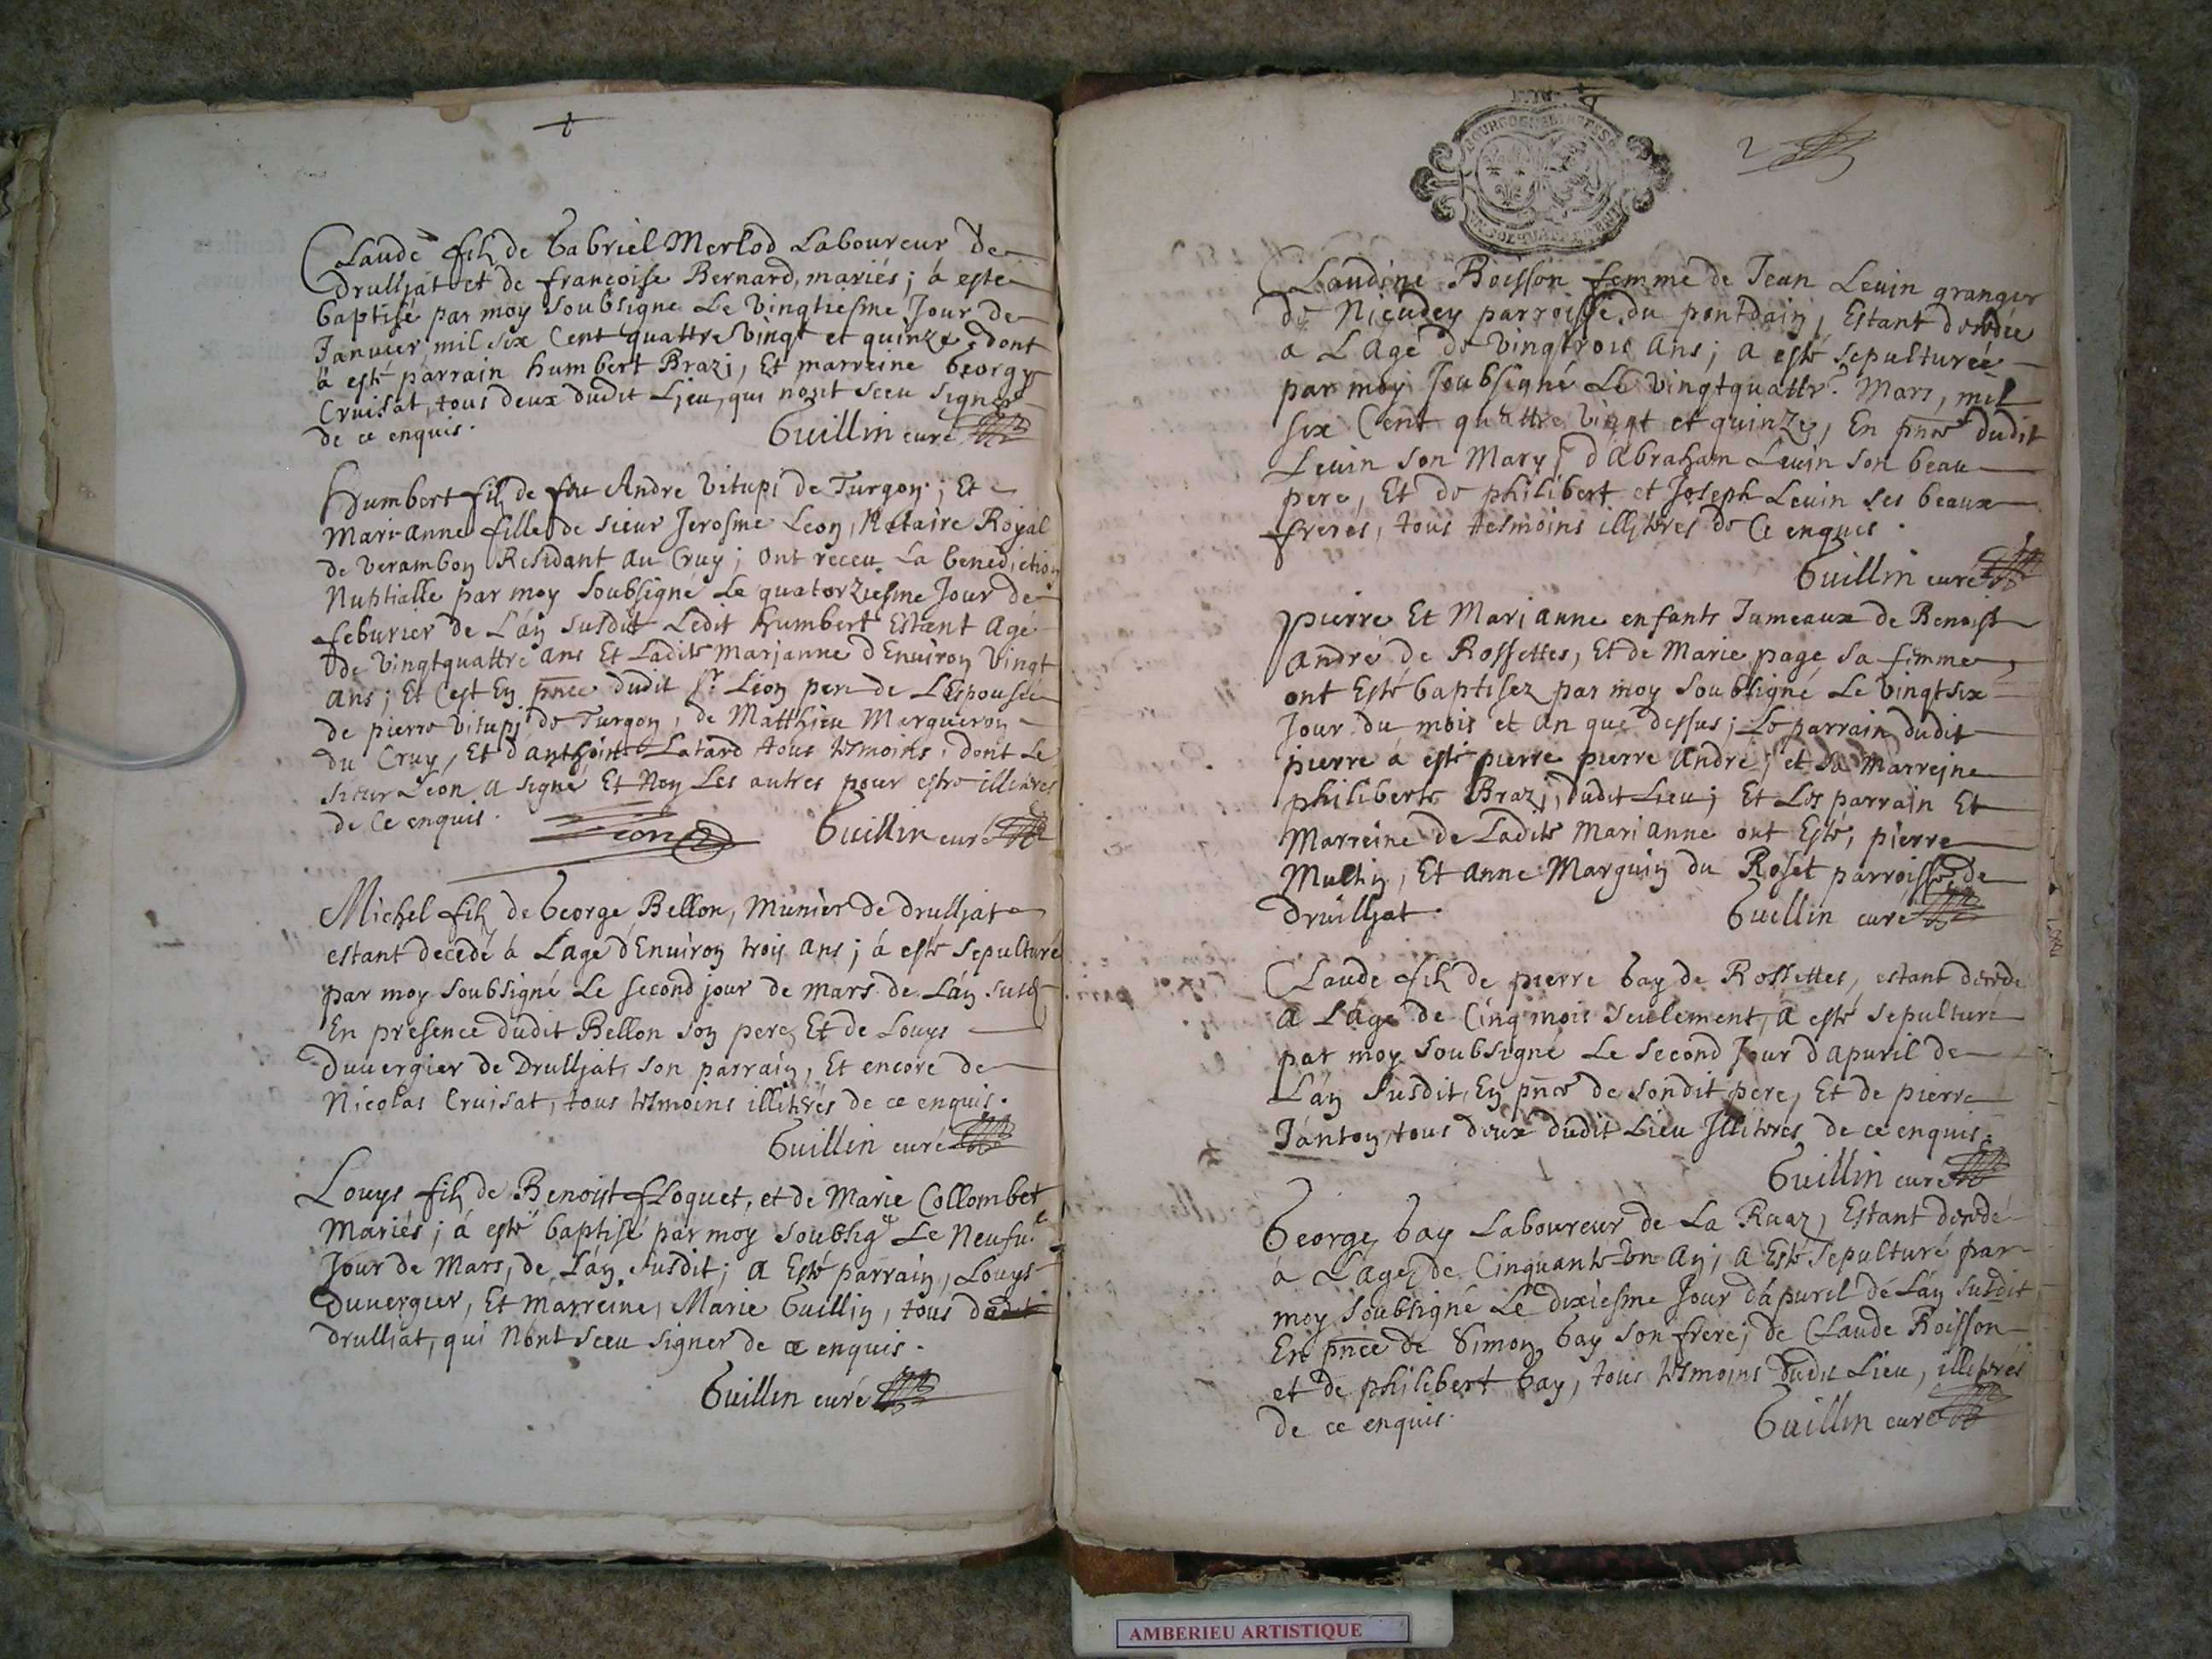 Claude filz de Gabriel Merlod Laboureur de
drulljat et de françoise Bernard, mariés; à este
baptisé par moy soubsigné Le vingtiesme Jour de
Januier, mil six Cent quattre vingt et quinze, dont
à esté parrain humbert Brazj, Et marreine George
Cruisat, tous deux dudit Ljeu, qui n'ont sceu signer
de ce enquis.
Guillin curé
Humbert filz de feu André Vitupi de Turgon; Et
Mari-anne fille de sieur Jerosme Leon, Notaire Royal
de Verambon Residant au Cruy; ont receu La benediction
Nuptialle par moy Soubsigné Le quatorziesme Jour de
feburier de L'an susdit Ledit humbert Estant age
de Vingtquattre ans Et Ladite marjanne d'Enuiron Vingt
ans; Et C'est En pnce dudit Sr. Léon pere de L'Espousée
de pierre Vitupj de Turgon, de Matthieu Margueron
du Cruy, Et d'anthoine Latard tous tesmoins, dont Le
sieur Léon a signé Et Non Les autres pour estre illitérés
de Ce enquis.
Leon
Guillin curé
Michel filz de George Bellon, Munier de drulljat
estant decedé à L'age d'Enuiron trois ans; à esté sepulturé
par moy Soubsigné Le second jour de mars de L'an susd
En presence dudit Bellon son pere, Et de Louys
Duuergier de Drulljat, son parrain, Et encore de
Nicolas Cruisat, tous tesmoins illitérés de ce enquis.
Guillin curé
Louys filz de Benoist floquet, et de Marie Collombet
Mariés; à esté baptisé par moy soubsigé Le Neufue
Jour de Mars, de L'an susdit; a Esté parrain, Louys
Duuergier, Et Marreine, Marie Guillin, tous de
drulliat, qui N'ont sceu signer de ce enquis.
Guillin curé
2
Claudine Boisson femme de Jean Leuin granger
de Nieudey parroisse du pontdain, Estant decedée
a L'Age de Vingtrois ans; a esté sepulturée
par moy Soubsigné Le Vingtquattre Mars, mil
six Cent quattre Vingt et quinze, En pnce dudit
Leuin son Mary, d'Abraham Leuin son beau
pere, Et de philibert et Joseph Leuin ses beaux
freres, tous tesmoins illitérés de Ce enquis.
Guillin curé
pierre Et Mari anne enfants Jumeaux de Benoist
André de Rossettes, Et de Marie page sa femme,
ont Esté baptisez par moy Soubsigné Le Vingtsix
Jour du mois et an que dessus; Le parrain dudit
pierre à esté pierre pierre André; et sa Marreine
philiberte Brazj, dudit Lieu; Et Les parrain Et
Marreine de Ladite Mari anne ont Esté, pierre
Muthin, Et anne Marguin du Roset parroisse de
druilljat.
Guillin curé
Claude filz de pierre bay de Rossettes, estant decedé
a L'Age de Cinq mois seulement, à esté sepulturé
par moy Soubsigné Le second Jour d'apuril de
L'an susdit, En pnce de sondit pere, Et de pierre
Janton, tous deux dudit Lieu Illitérés de ce enquis.
Guillin curé
George bay Laboureur de La Ruaz, Estant decedé
à L'age de Cinquante Un An; a Esté Sepulturé par
moy soubsigné Le dixiesme Jour d'apuril de L'an susdit
En pnce de Simon bay son frere; de Claude Boisson
et de philibert bay, tous tesmoins dudit Lieu, illitérés
de ce enquis.
Guillin curé
AMBERIEU ARTISTIQUE